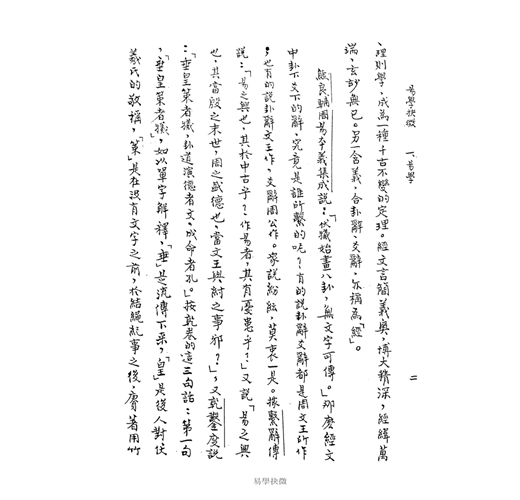 易學抉微　一、易學
二
、理則學，成為一種千古不變的定理。經文言簡義奧，博大精深，經緯萬
端，玄妙無已。另一含義，合卦辭、爻辭，亦稱為「經」。
熊良輔周易本義集成說：「伏犧始畫八卦，無文字可傳。」那麼經文
中卦下爻下的辭，究竟是誰所繫的呢？有的說卦辭爻辭都是周文王所作
；也有的說卦辭文王作，爻辭周公作。家說紛紜，莫衷一是。據繫辭傳
說：「易之興也，其於中古乎？作易者，其有憂患乎？」又說「易之興
也，其當殷之末世，周之盛德也，當文王與紂之事邪？」，又乾鑿度說
：「垂皇策者犧，卦道演德者文，成命者孔」。按乾卷的這三句話：第一句
，「垂皇策者犧」，如以單字解釋，「垂」是流傳下來，「皇」是後人對伏
羲氏的敬稱，「策」是在沒有文字之前，於結繩紀事之後，賡著用竹
易學抉微